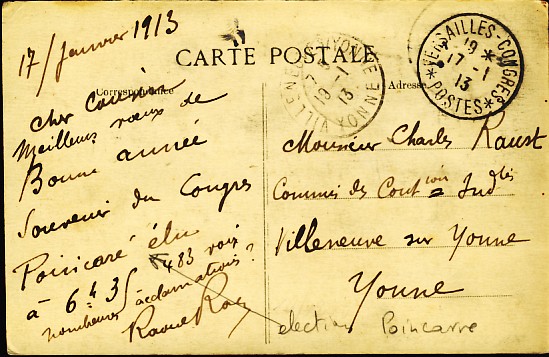 17/Janvier 1913
CARTE POSTALE
Correspondance
Adresse
VERSAILLES-CONGRES
* 19 *
17-1
13
*POSTES*
VILLENEUVE
YONNE
19-1
13
Cher Cousin
Meilleurs vœux de
Bonne année
Souvenir du Congres
Poincaré élu
à 6h35 483 voix
nombreuses acclamations?
Raoul
Monsieur Charles Raust
Commis des Contions Indtes
Villeneuve sur Yonne
Yonne
election Poincarre